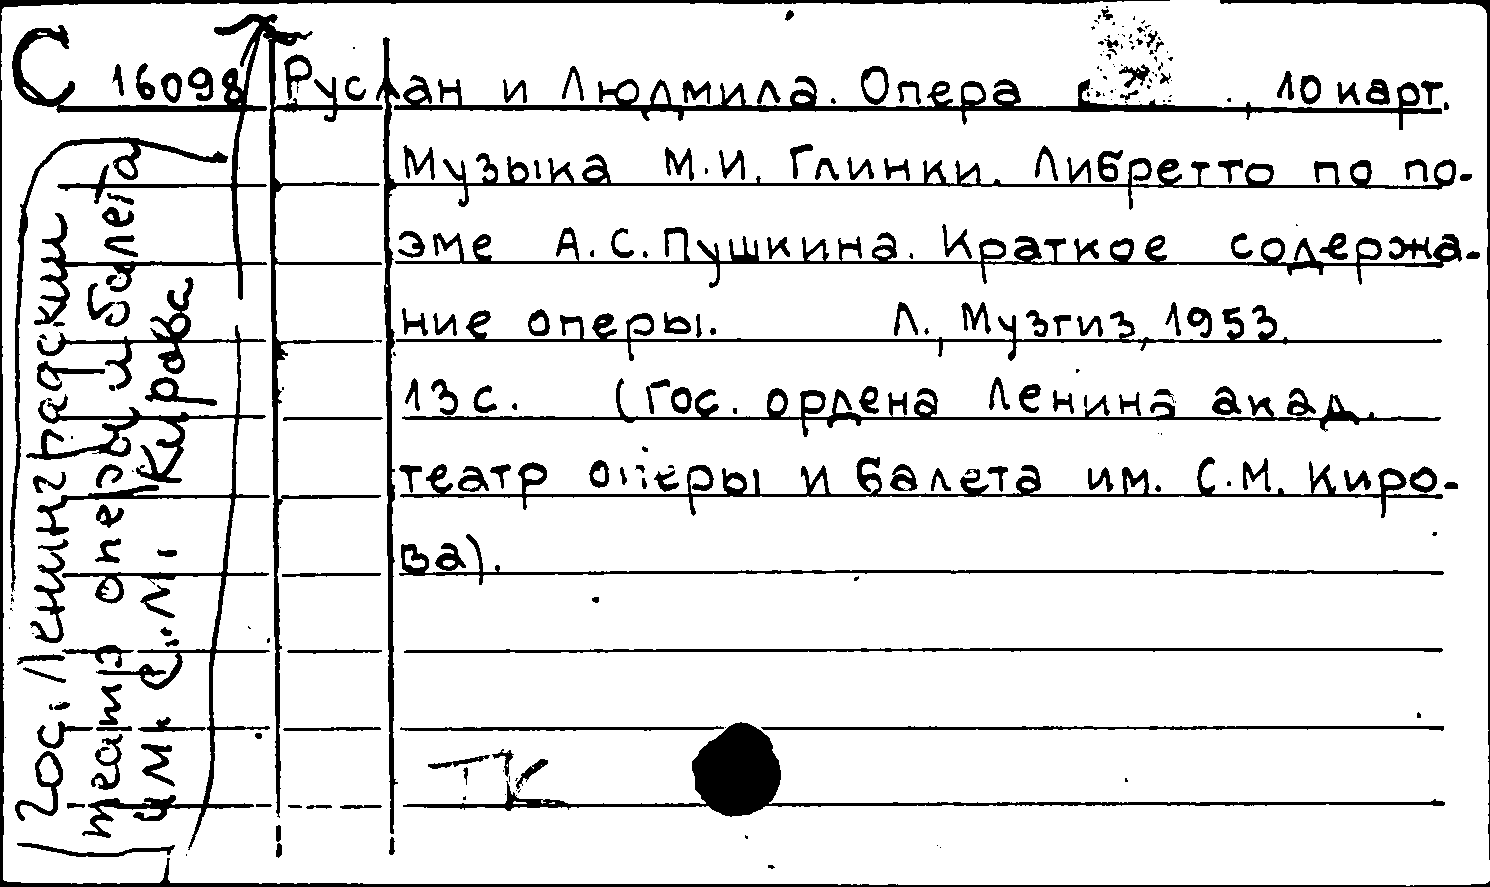 С 16098 Руслан и Людмила. Опера , 10 карт.
Музыка М.И. Глинки. Либретто по по-
эме А.С. Пушкина. Краткое содержа-
ние оперы. Л., Музгиз, 1953.
13 с. (Гос. ордена Ленина акад.
театр оперы и балета им. С.М. Киро-
ва).
ТК
Гос. Ленинградский
театр оперы и балета
им. С.М. Кирова